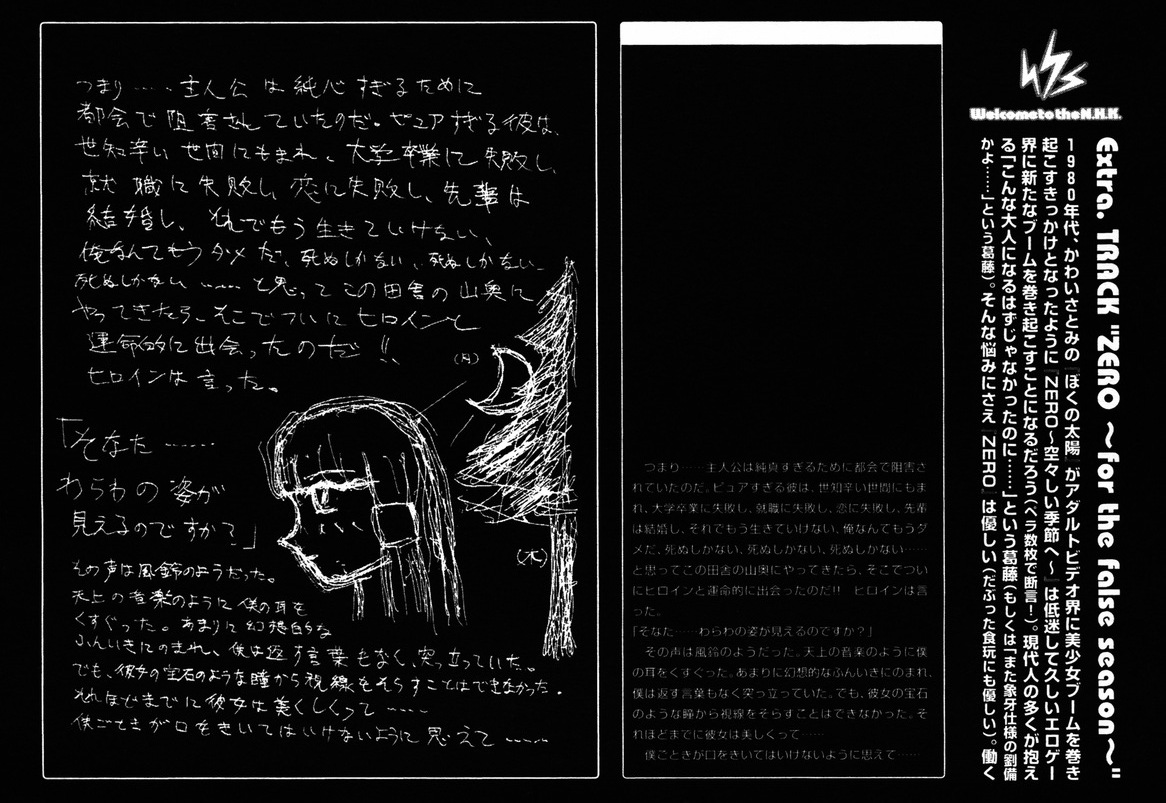 Welcome to the N.H.K.
Extra. TRACK "ZERO ～for the false season～"
1980年代、かわいさとみの『ぼくの太陽』がアダルトビデオ界に美少女ブームを巻き
起こすきっかけとなったように『ZERO～空々しい季節へ～』は低迷して久しいエロゲー
界に新たなブームを巻き起こすことになるだろう（ペラ数枚で断言！）。現代人の多くが抱え
る「こんな大人になるはずじゃなかったのに……」という葛藤（もしくは「また象牙仕様の劉備
かよ……」という葛藤）。そんな悩みにさえ『ZERO』は優しい（だぶった食玩にも優しい）。働く
つまり……主人公は純真すぎるために都会で阻害さ
れていたのだ。ピュアすぎる彼は、世知辛い世間にもま
れ、大学卒業に失敗し、就職に失敗し、恋に失敗し、先輩
は結婚し、それでもう生きていけない、俺なんてもうダ
メだ、死ぬしかない、死ぬしかない、死ぬしかない……
と思ってこの田舎の山奥にやってきたら、そこでつい
にヒロインと運命的に出会ったのだ!!　ヒロインは言
った。
「そなた……わらわの姿が見えるのですか？」
その声は風鈴のようだった。天上の音楽のように僕
の耳をくすぐった。あまりに幻想的なふんいきにのまれ、
僕は返す言葉もなく突っ立っていた。でも、彼女の宝石
のような瞳から視線をそらすことはできなかった。そ
れほどまでに彼女は美しくって……
僕ごときが口をきいてはいけないように思えて……
つまり……主人公は純心すぎるために
都会で阻害されていたのだ。ピュアすぎる彼は、
世知辛い世間にもまれ、大学卒業に失敗し、
就職に失敗し、恋に失敗し、先輩は
結婚し、それでもう生きていけない、
俺なんてもうダメだ、死ぬしかない、死ぬしかない、
死ぬしかない……と思ってこの田舎の山奥に
やってきたら、そこでついにヒロインと
運命的に出会ったのだ!!
ヒロインは言った。
（月）
「そなた……
わらわの姿が
見えるのですか？」
（木）
その声は風鈴のようだった。
天上の音楽のように僕の耳を
くすぐった。あまりに幻想的な
ふんいきにのまれ、僕は返す言葉もなく、突っ立っていた。
でも、彼女の宝石のような瞳から視線をそらすことはできなかった。
それほどまでに彼女は美しくって……
僕ごときが口をきいてはいけないように思えて……